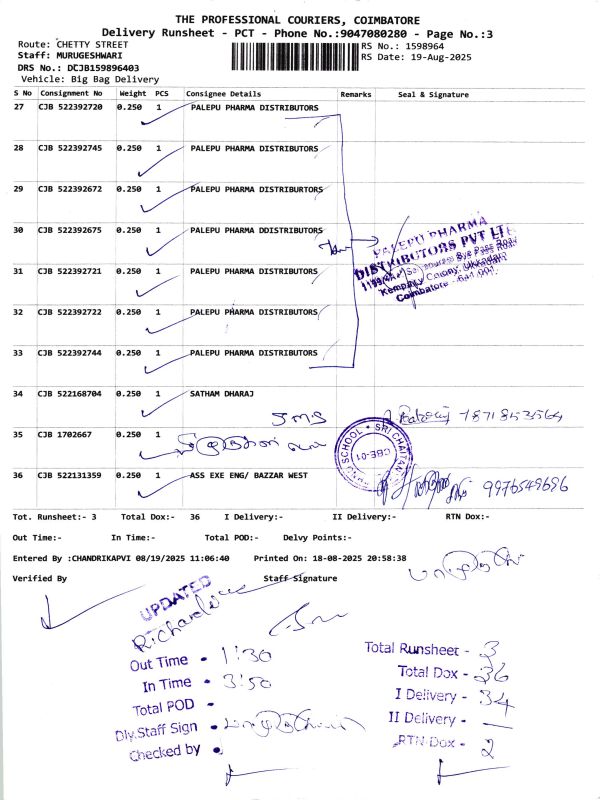 THE PROFESSIONAL COURIERS, COIMBATORE
Delivery Runsheet - PCT - Phone No.:9047080280 - Page No.:3
Route: CHETTY STREET
RS No.: 1598964
Staff: MURUGESHWARI
RS Date: 19-Aug-2025
DRS No.: DCJB159896403
Vehicle: Big Bag Delivery
S No Consignment No Weight PCS Consignee Details Remarks Seal & Signature
27 CJB 522392720 0.250 1 PALEPU PHARMA DISTRIBUTORS
28 CJB 522392745 0.250 1 PALEPU PHARMA DISTRIBUTORS
29 CJB 522392672 0.250 1 PALEPU PHARMA DISTRIBURTORS
30 CJB 522392675 0.250 1 PALEPU PHARMA DDISTRIBUTORS
PALEPU PHARMA
DISTRIBUTORS PVT LTD
Coimbatore - 641 001.
31 CJB 522392721 0.250 1 PALEPU PHARMA DISTRIBUTORS
32 CJB 522392722 0.250 1 PALEPU PHARMA DISTRIBUTORS
33 CJB 522392744 0.250 1 PALEPU PHARMA DISTRIBUTORS
34 CJB 522168704 0.250 1 SATHAM DHARAJ
SMS
35 CJB 1702667 0.250 1
SCHOOL * SRI CHAITAN
CBE-01
36 CJB 522131359 0.250 1 ASS EXE ENG/ BAZZAR WEST
9976549696
Tot. Runsheet:- 3 Total Dox:- 36 I Delivery:- II Delivery:- RTN Dox:-
Out Time:- In Time:- Total POD:- Delvy Points:-
Entered By :CHANDRIKAPVI 08/19/2025 11:06:40 Printed On: 18-08-2025 20:58:38
Verified By Staff Signature
UPDATED
Out Time - 1:30
In Time - 3:50
Total POD -
Dly.Staff Sign -
Checked by -
Total Runsheet - 3
Total Dox - 36
I Delivery - 34
II Delivery - —
RTN Dox - 2